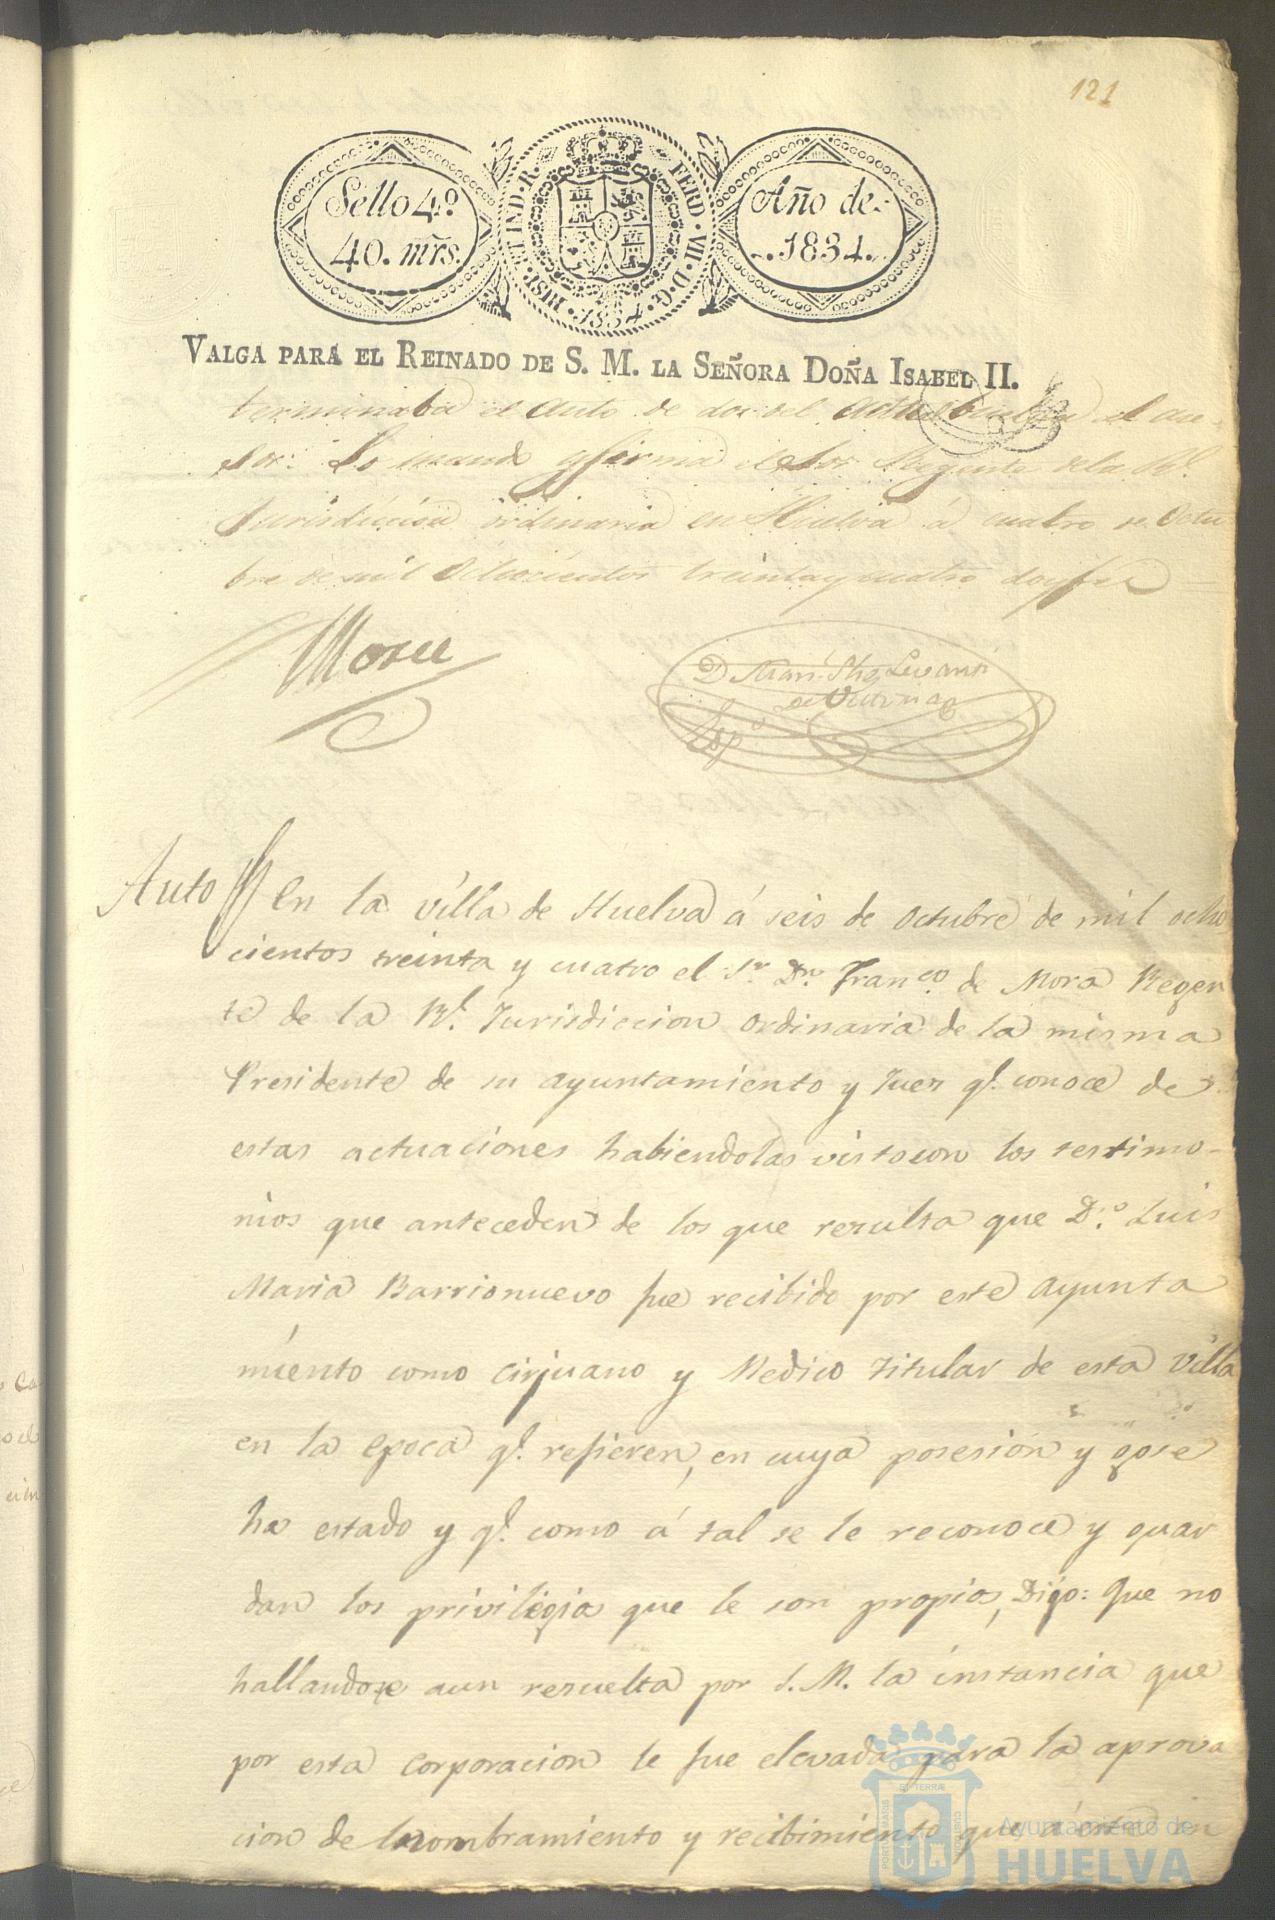 121
Sello 4º
40. mrs.
HISP. ET IND. R. FERD. VII. D. G. 1834.
Año de
1834.
VALGA PARA EL REINADO DE S. M. LA SEÑORA DOÑA ISABEL II.
terminaba el auto de dos del actual el
Lo mandó y firma el Sor Regente de la Rl.
Jurisdiccion ordinaria en Huelva á cuatro de Octu
bre de mil ochocientos treinta y cuatro doy fee
Mora
Auto En la villa de Huelva á seis de Octubre de mil ocho
cientos treinta y cuatro el Sr. Dn. Franco. de Mora Regen
te de la Rl. Jurisdiccion Ordinaria de la misma
Presidente de su ayuntamiento y Juez ql. conoce de
estas actuaciones habiendolas visto con los testimo-
nios que anteceden de los que resulta que Dn. Luis
Maria Barrionuevo fue recibido por este ayunta
miento como cirjuano y Medico titular de esta villa
en la epoca ql. refieren, en cuya posesion y gose
ha estado y ql. como á tal se le reconoce y guar
dan los privilegios que le son propios, Dijo: Que no
hallandose aun resuelta por S. M. la instancia que
por esta corporacion le fue elevada para la aprova
cion de nombramiento y recibimiento que
Ayuntamiento de
HUELVA